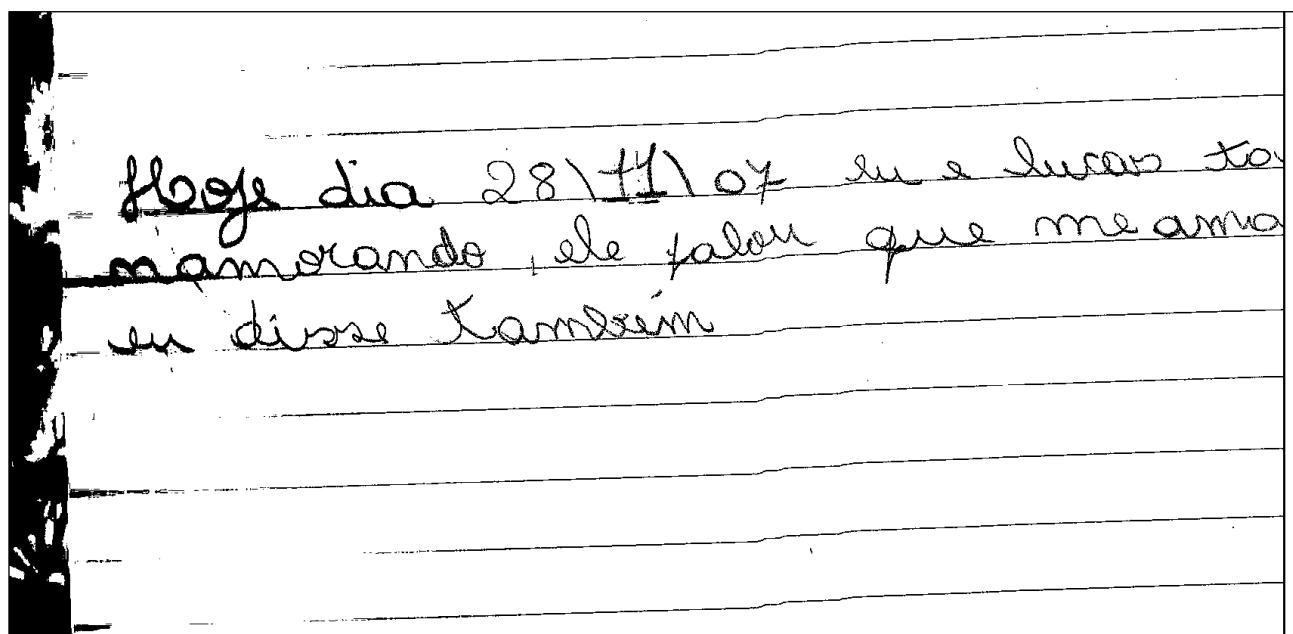 Hoje dia 28\11\07 eu e lucas to
namorando, ele falou que me ama
eu disse também